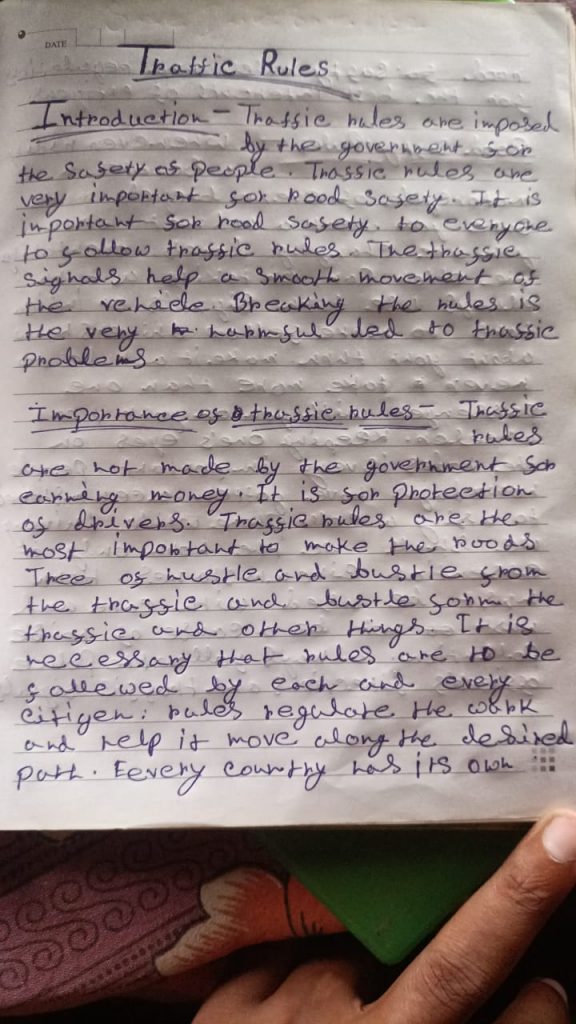 DATE
Traffic Rules
Introduction - Traffic rules are imposed
by the government for
the safety of people. Traffic rules are
very important for road safety. It is
important for road safety. to everyone
to follow traffic rules. The traffic
signals help a smooth movement of
the vehicle. Breaking the rules is
the very harmful led to traffic
problems.
Importance of traffic rules - Traffic
rules
are not made by the government for
earning money. It is for protection
of drivers. Traffic rules are the
most important to make the roads
Tree of hustle and bustle from
the traffic and bustle form the
traffic and other things. It is
necessary that rules are to be
follewed by each and every
citizen: rules regulate the work
and help it move along the desired
path. Eevery country has its own